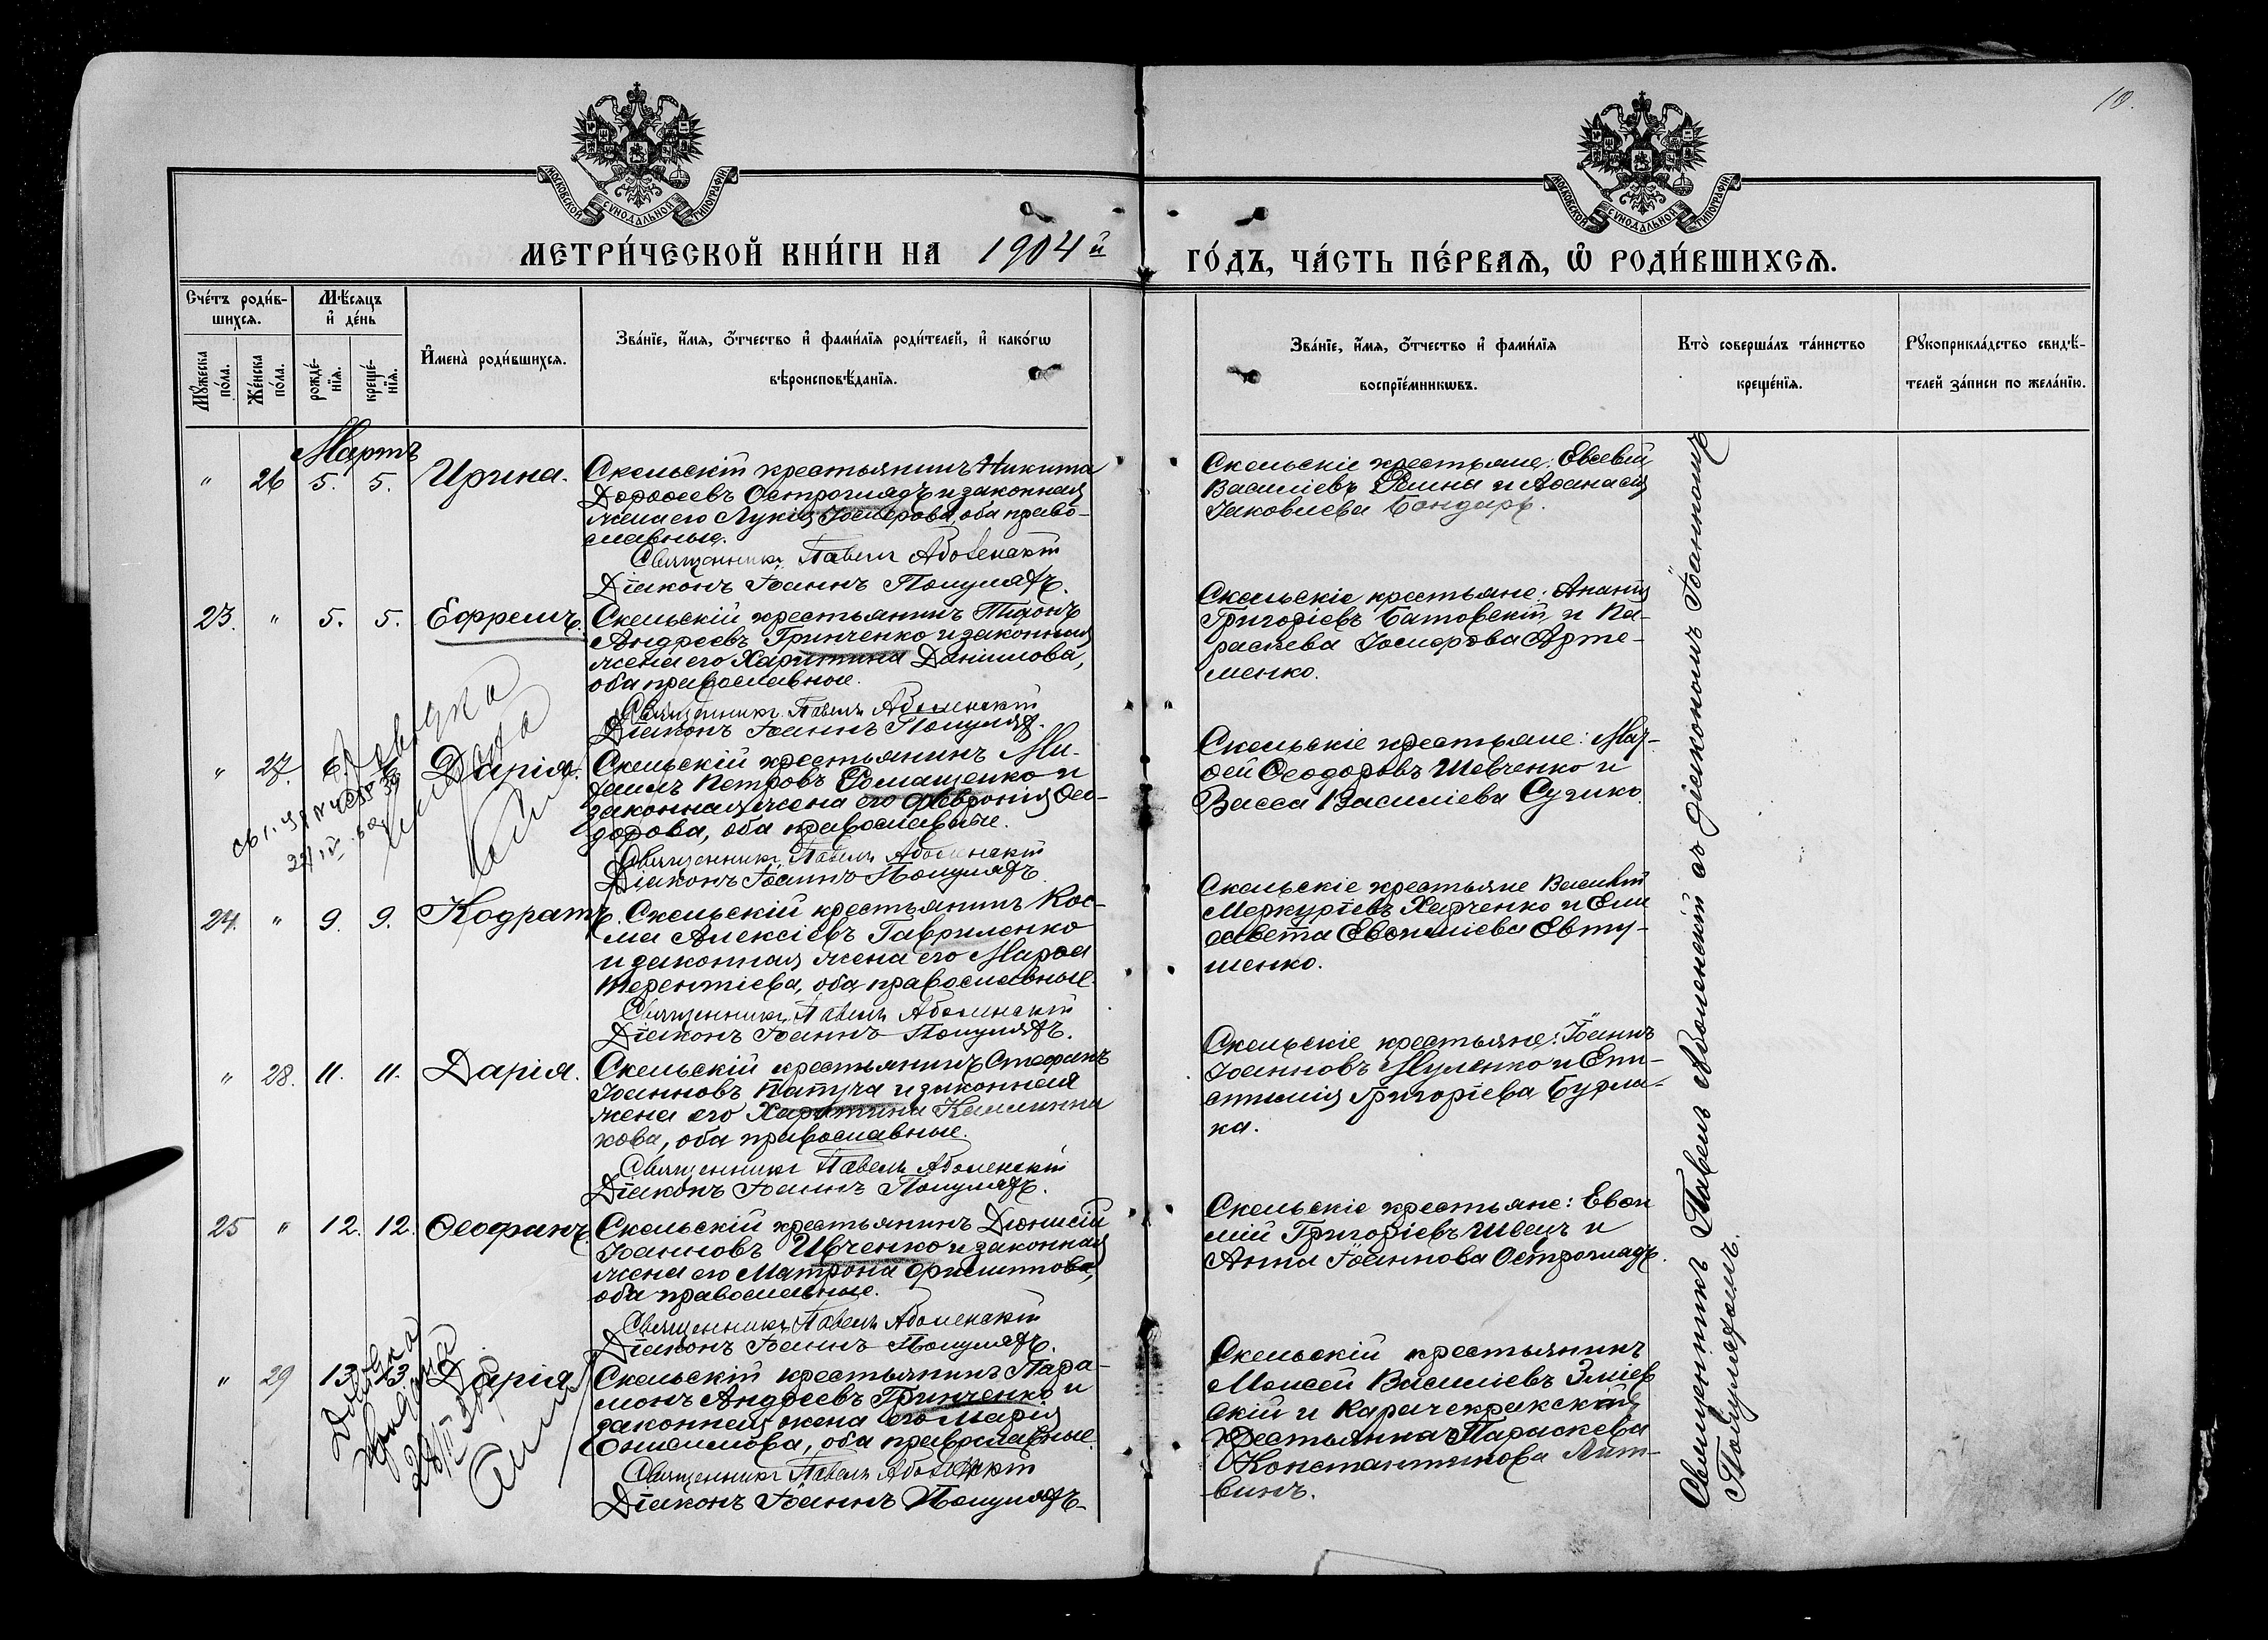 10.
МОСКОВСКОЙ СѴНОДАЛЬНОЙ ТИПОГРАФІИ
МОСКОВСКОЙ СѴНОДАЛЬНОЙ ТИПОГРАФІИ
МЕТРИ́ЧЕСКОЙ КНИ́ГИ НА 1904й ГО́ДЪ, ЧА́СТЬ ПЕ́РВАѦ, Ѽ РОДИ́ВШИХСѦ.
Сче́тъ роди́в-
шихсѧ.
Мꙋжеска по́ла.
Же́нска по́ла.
Мѣ́сѧцъ и҆ де́нь
рожде́-
нїѧ.
креще́-
нїѧ.
И҆мена̀ роди́вшихсѧ.
Зва́нїе, и҆́мѧ, ѻ҆́тчество и҆ фами́лїѧ роди́телей, и҆ како́гѡ
вѣроисповѣ́данїѧ.
Зва́нїе, и҆́мѧ, ѻ҆́тчество и҆ фами́лїѧ
воспрїе́мникѡвъ.
Кто̀ соверша́лъ та́инство
креще́нїѧ.
Рꙋкоприкла́дство свидѣ́-
телей за́писи по жела́нїю.
Мартъ
" 26 5. 5. Ирина.
Скельскій крестьянинъ Никита
Дороѳеевъ Остроглядъ и законная
жена его Лукія Іосифова, оба право-
славные.
Священникъ Павелъ Аболенскій
Діаконъ Іоаннъ Полуляхъ.
Скельскіе крестьяне: Евсевій
Василіевъ и Аѳанасія
Іаковлева Бондарь.
23. " 5. 5. Ефремъ.
Скельскій крестьянинъ Тихонъ
Андреевъ Гринченко и законная
жена его Харитина Даніилова,
оба православные.
Священникъ Павелъ Аболенскій
Діаконъ Іоаннъ Полуляхъ.
Скельскіе крестьяне: Ананія
Григоріевъ Батовскій и Па-
раскева Іосифова Арте-
менко.
" 27. 6. 6. Дарія.
Скельскій крестьянинъ Ми-
хаилъ Петровъ Ромащенко и
законная жена его Февронія Ѳео-
дорова, оба православные.
Священникъ Павелъ Аболенскій
Діаконъ Іоаннъ Полуляхъ.
Скельскіе крестьяне: Мат-
ѳей Ѳеодоровъ Шевченко и
Васса Василіева Сучико.
24. " 9. 9. Кодратъ.
Скельскій крестьянинъ Кос-
ма Алексіевъ Гавриленко
и законная жена его Марѳа
Терентіева, оба православные.
Священникъ Павелъ Аболенскій
Діаконъ Іоаннъ Полуляхъ.
Скельскіе крестьяне Василій
Меркуріевъ Харченко и Ели
савета Евѳиміева Евту-
шенко.
" 28. 11. 11. Дарія.
Скельскій крестьянинъ Стефанъ
Іоанновъ Патуга и законная
жена его Харитина Каллини
кова, оба православные.
Священникъ Павелъ Аболенскій
Діаконъ Іоаннъ Полуляхъ.
Скельскіе крестьяне: Іоаннъ
Іоанновъ Муленко и Епи-
стимія Григоріева Бурла-
ка.
25 " 12. 12. Ѳеофанъ.
Скельскій крестьянинъ Діонисій
Іоанновъ Ивченко и законная
жена его Матрона Филиппова,
оба православные.
Священникъ Павелъ Аболенскій
Діаконъ Іоаннъ Полуляхъ.
Скельскіе крестьяне: Евѳи
мій Григоріевъ Швецъ и
Анна Іоаннова Остроглядъ.
" 29 13. 13. Дарія
Скельскій крестьянинъ Пара-
монъ Андреевъ Гринченко и
законная жена его Марія
Онисимова, оба православные.
Священникъ Павелъ Аболенскій
Діаконъ Іоаннъ Полуляхъ.
Скельскій крестьянинъ
Моисей Василіевъ Зміев
скій и Карачекракская
крестьянка Параскева
Константинова Лит-
винъ.
Священникъ Павелъ Аболенскій съ діакономъ Іоанномъ
Полуляхомъ.